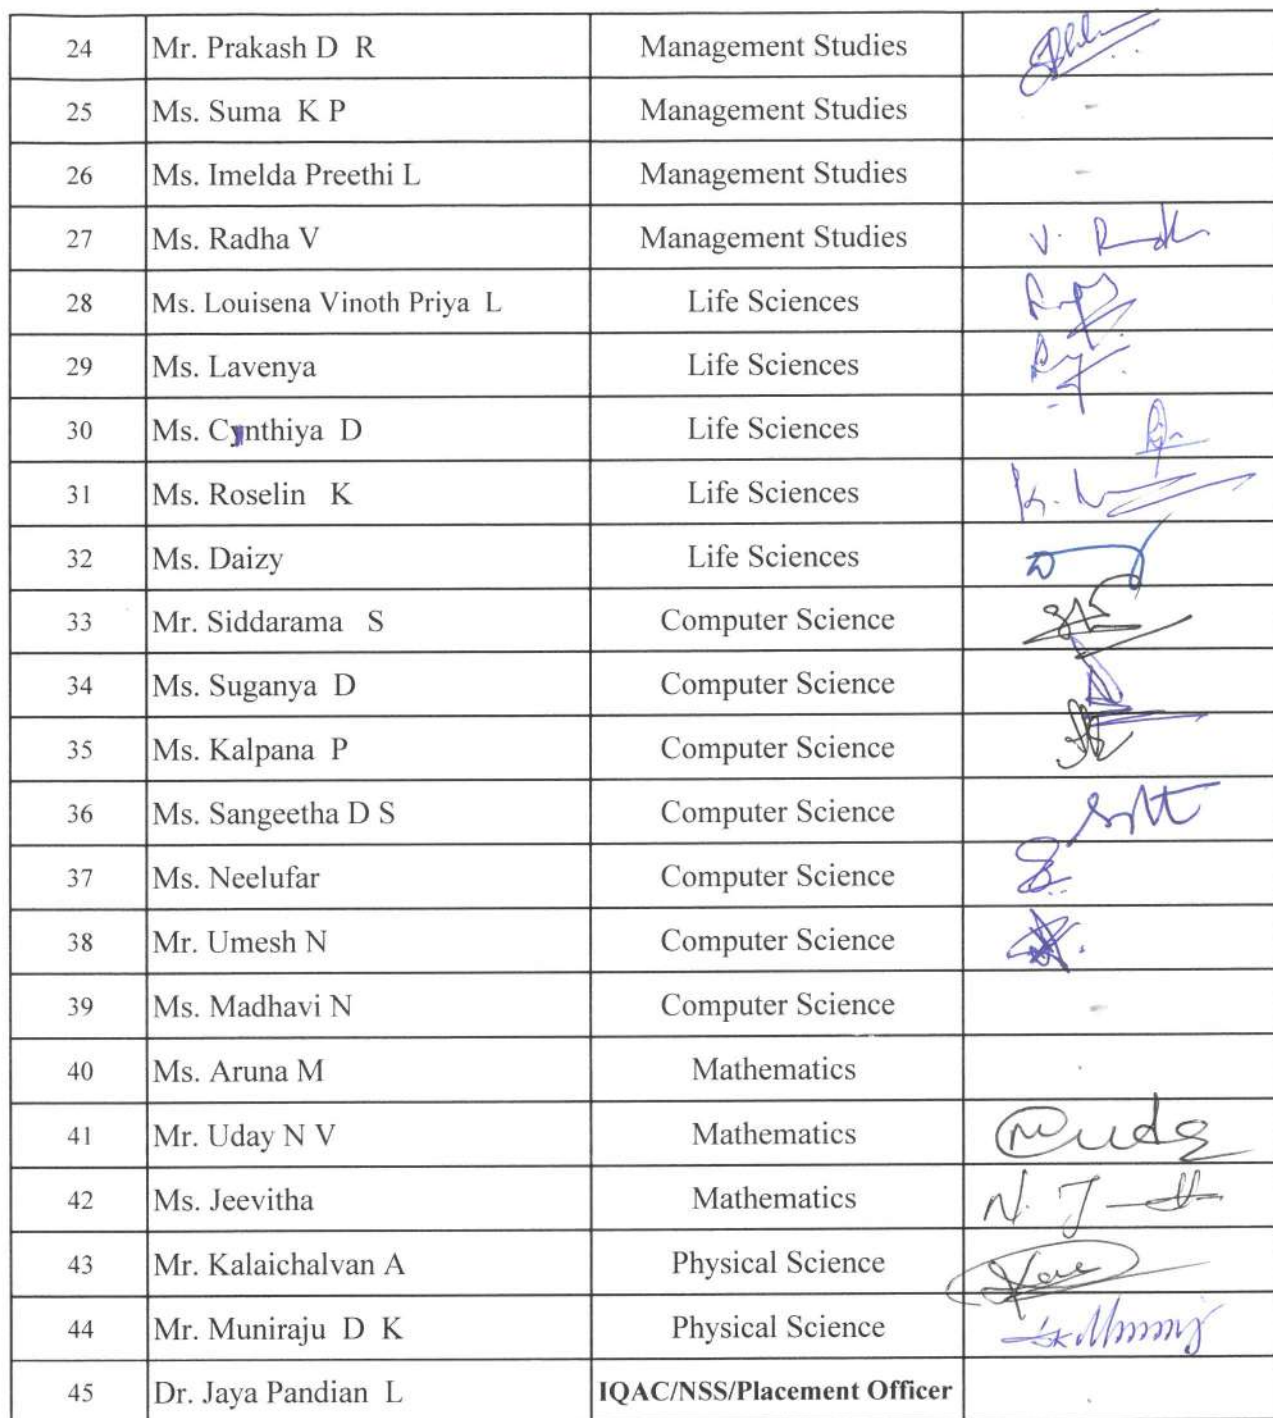 24 Mr. Prakash D R Management Studies
25 Ms. Suma K P Management Studies -
26 Ms. Imelda Preethi L Management Studies -
27 Ms. Radha V Management Studies V.
28 Ms. Louisena Vinoth Priya L Life Sciences
29 Ms. Lavenya Life Sciences
30 Ms. Cynthiya D Life Sciences
31 Ms. Roselin K Life Sciences K.
32 Ms. Daizy Life Sciences
33 Mr. Siddarama S Computer Science
34 Ms. Suganya D Computer Science
35 Ms. Kalpana P Computer Science
36 Ms. Sangeetha D S Computer Science
37 Ms. Neelufar Computer Science
38 Mr. Umesh N Computer Science
39 Ms. Madhavi N Computer Science -
40 Ms. Aruna M Mathematics
41 Mr. Uday N V Mathematics
42 Ms. Jeevitha Mathematics N. J
43 Mr. Kalaichalvan A Physical Science
44 Mr. Muniraju D K Physical Science
45 Dr. Jaya Pandian L IQAC/NSS/Placement Officer